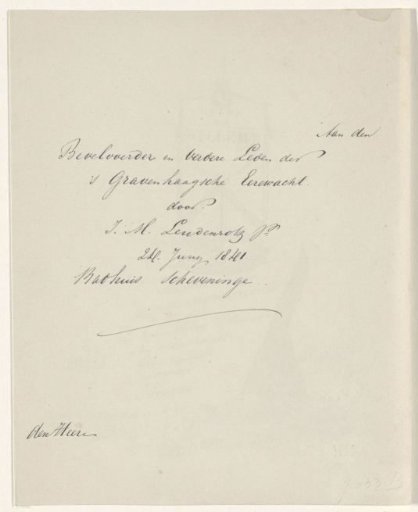 Aan den
Bevelvoerder en verdere Leden der
's Gravenhaagsche Eerewacht.
door
J. M.
24. Juny 1841
Badhuis Scheveninge.
den Heere